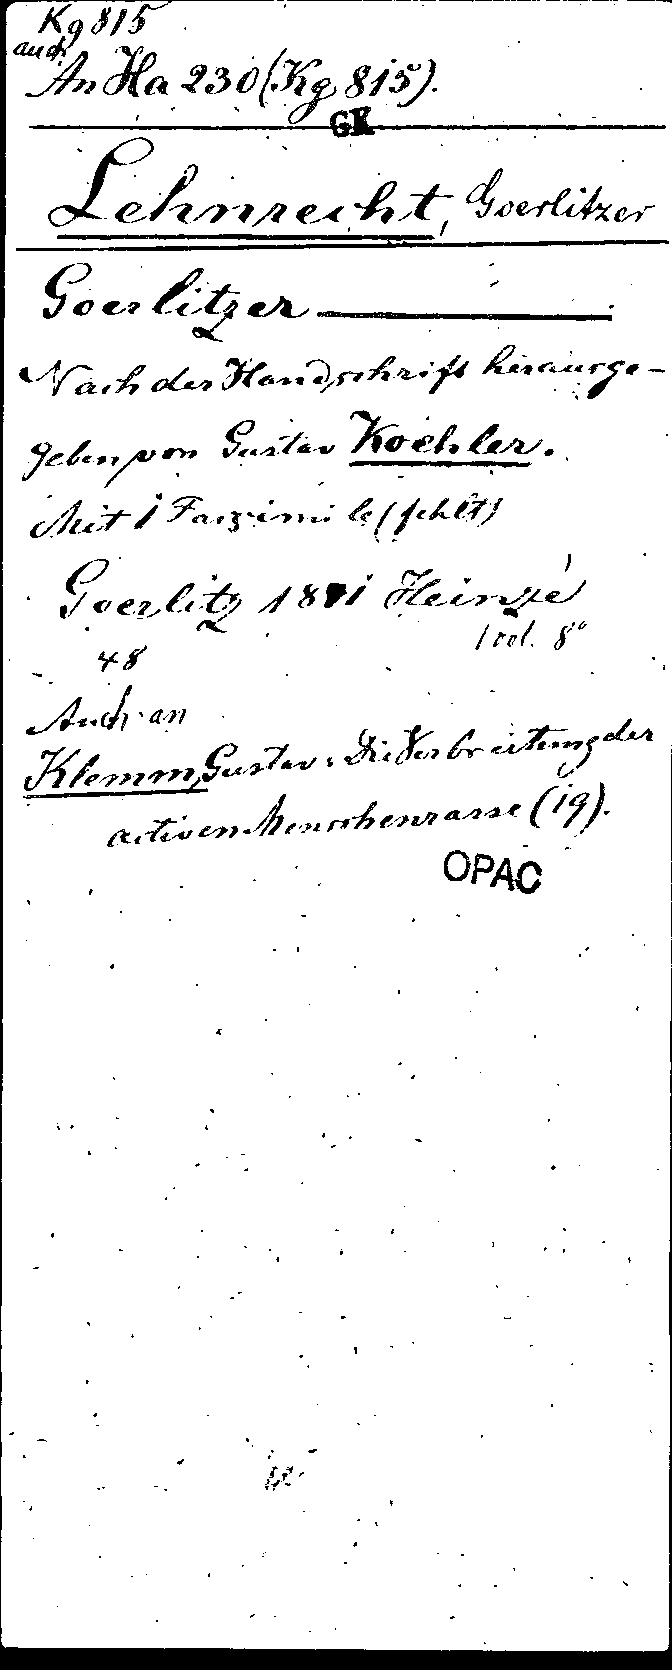 Kg 815
auch
An Ha 230 (Kg 815).
GK
Lehnrecht, Goerlitzer
Goerlitzer ————
Nach der Handschrift herausge-
geben von Gustav Koehler.
Mit 1 Faczimile (fehlt)
Goerlitz Heinze
1 vol. 8°
48
Auch an
Klemm, Gustav: Die Verbreitung der
activen Menschenrasse (19).
OPAC